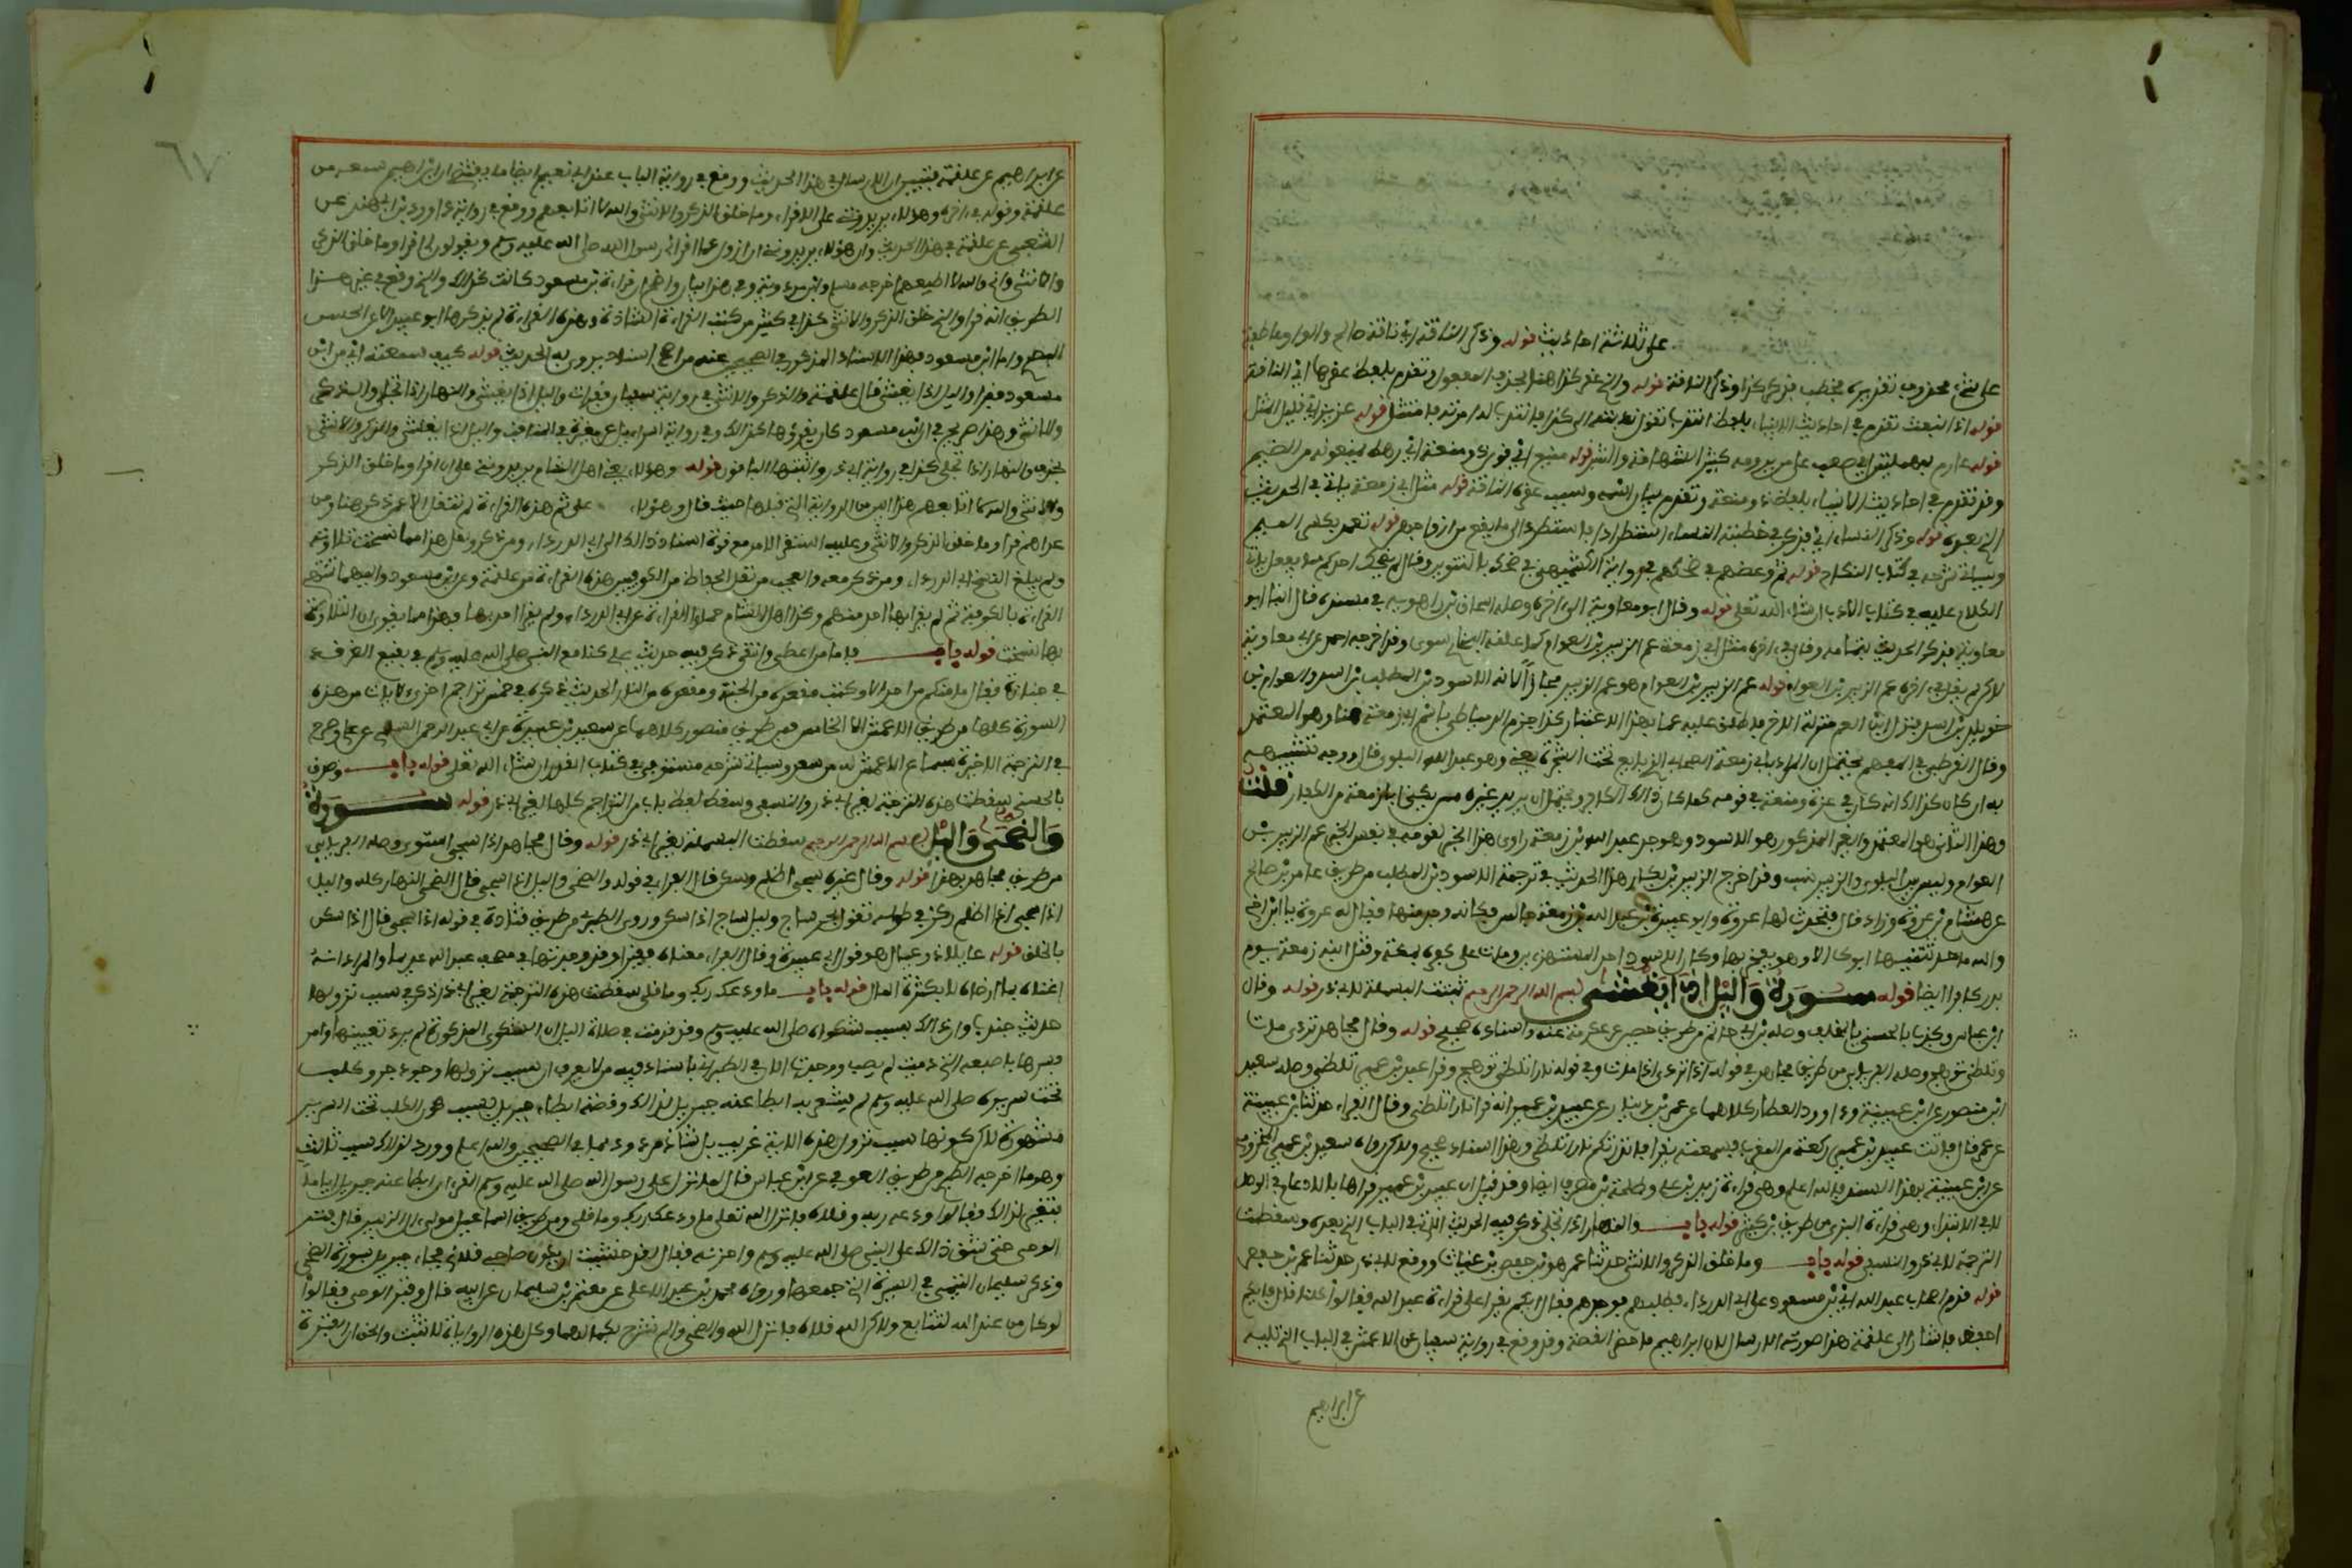 على ثلاثة احاديث قوله وذكر الناقة اي ناقة صالح والواو عاطفة
على شيء محذوف تقديره فخطب فذكر كذا وذكر الناقة قوله والذي عقر كذا هنا بحذف المفعول وتقدم بلفظ عقرها اي الناقة
قوله اذ انبعث تقدم في احاديث الانبياء بلفظ انتدب تقول ندبته الى كذا فانتدب له اي امرته فامتثل قوله عزيز اي قليل المثل
قوله عارم بمهملتين اي صعب على من يرومه كثير الشهامة والشر قوله منيع اي قوي ذو منعة اي رهط يمنعونه من الضيم
وقد تقدم في احاديث الانبياء بلفظ ذو منعة وتقدم بيان اسمه وسبب عقره الناقة قوله مثل ابي زمعة ياتي في الحديث
الذي بعده قوله وذكر النساء اي وذكر في خطبته النساء استطرادا الى ما يقع من ازواجهن قوله يعمد بكسر الميم
وسياتي شرحه في كتاب النكاح قوله ثم وعظهم في ضحكهم في رواية الكشميهني في ضحك بالتنوين وقال لم يضحك احدكم مما يفعل ياتي
الكلام عليه في كتاب الادب ان شاء الله تعلى قوله وقال ابو معاوية الى اخره وصله اسحاق بن راهويه في مسنده قال انبانا ابو
معاوية فذكر الحديث بتمامه وقال في اخره مثل ابي زمعة عم الزبير بن العوام كما علقه البخاري سوى وقد اخرجه احمد عن ابي معاوية
لاكن لم يقل في اخره عم الزبير بن العوام قوله عم الزبير بن العوام هو عم الزبير مجازا لانه الاسود بن المطلب بن اسد والعوام بن
خويلد بن اسد فنزل ابن العم منزلة الاخ فاطلق عليه عما بهذا الاعتبار كذا جزم الدمياطي باسم ابي زمعة هنا وهو المعتمد
وقال القرطبي في المفهم يحتمل ان المراد بابي زمعة الصحابي الذي بايع تحت الشجرة يعني وهو عبيد البلوي قال ووجه تشبيهه
به ان كان كذالك انه كان في عزة ومنعة في قومه كما كان ذالك الكافر ويحتمل ان يريد غيره ممن يكنى ابا زمعة من الكفار قلت
وهذا الثاني هو المعتمد والغير المذكور هو الاسود وهو جد عبد الله بن زمعة راوي هذا الخبر لقوله في نفس الخبر عم الزبير بن
العوام وليس بين البلوي والزبير نسب وقد اخرج الزبير بن بكار هذا الحديث في ترجمة الاسود بن المطلب من طريق عامر بن صالح
عن هشام بن عروة وزاد قال فتحدث بها عروة وابو عبيدة بن عبد الله بن زمعة جالس فكانه وجد منها فقال له عروة يا ابن اخي
والله ما حدثنيها ابوك الا وهو يفخر بها وكان الاسود احد المستهزءين ومات على كفره بمكة وقتل ابنه زمعة يوم
بدر كافرا ايضا قوله سورة واليل اذا يغشى بسم الله الرحمن الرحيم ثبتت البسملة لابي ذر قوله وقال
ابن عباس وكذب بالحسنى بالخلف وصله ابن ابي حاتم من طريق حصين عن عكرمة عنه واسناده صحيح قوله وقال مجاهد تردى مات
وتلظى توهج وصله الفريابي من طريق مجاهد في قوله اذا تردى اذا مات وفي قوله نارا تلظى توهج وقرا عبيد بن عمير تلظى وصله سعيد
ابن منصور عن ابن عيينة وداود العطار كلاهما عن عمرو بن دينار عن عبيد بن عمير انه قرا نارا تلظى وقال الفراء حدثنا ابن عيينة
عن عمرو قال فاتت عبيد بن عمير ركعة من المغرب فسمعته يقرا فانذرتكم نارا تلظى وهذا اسناد صحيح ولاكن رواه سعيد بن عمير المخزومي
عن ابن عيينة بهذا السند فالله اعلم وهي قراءة زيد بن علي وطلحة بن مصرف ايضا وقد قيل ان عبيد بن عمير قراها بالادغام في الوصل
لا في الابتداء وهي قراءة البزي من طريق بن كثير قوله باب والنهار اذا تجلى ذكر فيه الحديث الاتي في الباب الذي بعده وسقطت
الترجمة لابي ذر والنسفي قوله باب وما خلق الذكر والانثى حدثنا عمر هو بن حفص بن غياث ووقع لابي ذر حدثنا عمر بن حفص
قوله قدم اصحاب عبد الله اي بن مسعود على ابي الدرداء فطلبهم فوجدهم فقال ايكم يقرا على قراءة عبد الله فقالوا كلنا قال فايكم
احفظ فاشار الى علقمة هذا صورته الارسال لان ابراهيم ما حضر القصة وقد وقع في رواية سفيان عن الاعمش في الباب الذي يليه
عن ابراهيم
٦٧
عن ابراهيم عن علقمة فتبين ان الارسال في هذا الحديث ووقع في رواية الباب عند ابي نعيم ايضا ما يقتضي ان ابراهيم سمعه من
علقمة وقوله في اخره وهؤلاء يريدونني على ان اقراء وما خلق الذكر والانثى والله لا اتابعهم ووقع في رواية داوود بن ابي هند عن
الشعبي عن علقمة في هذا الحديث وان هؤلاء يريدونني ان ازول عما اقراني رسول الله صلى الله عليه وسلم ويقولون لي اقرا وما خلق الذكر
والانثى واني والله لا اطيعهم اخرجه مسلم وابن مردويه وفي هذا بيان واضح ان قراءة بن مسعود كانت كذالك والذي وقع في غير هذا
الطريق انه قرا والذي خلق الذكر والانثى كذا في كثير من كتب القراءة الشاذة وهذه القراءة لم يذكرها ابو عبيد الا عن الحسن
البصري واما ابن مسعود فهذا الاسناد المذكور في الصحيح عنه من اصح اسناد يروى به الحديث قوله كيف سمعته اي من ابن
مسعود يقرا واليل اذا يغشى قال علقمة والذكر والانثى في رواية سفيان فقرات واليل اذا يغشى والنهار اذا تجلى والذكر
والانثى وهذا صريح في ان بن مسعود كان يقرؤها كذالك وفي رواية اسراءيل عن مغيرة في المناقب واليل اذا يغشى والذكر والانثى
بحذف والنهار اذا تجلى كذا في رواية ابي ذر واثبتها الباقون قوله وهؤلاء يعني اهل الشام يريدونني على ان اقرا وما خلق الذكر
والانثى والله لا اتابعهم هذا ابين من الرواية التي قبلها حيث قال وهؤلاء ثم هذه القراءة لم تنقل الا عمن ذكر هنا ومن
عداهم قرا وما خلق الذكر والانثى وعليها استقر الامر مع قوة اسناد ذالك الى ابي الدرداء ومن ذكر ولعل هذا مما نسخت تلاوته
ولم يبلغ النسخ ابي الدرداء ومن ذكر معه والعجب من نقل الحفاظ من الكوفيين هذه القراءة عن علقمة وعن ابن مسعود واليهما تنتهي
القراءة بالكوفة ثم لم يقرا بها احد منهم وكذا اهل الشام حملوا القراءة عن ابي الدرداء ولم يقرا احد بها فهذا مما يقوي ان التلاوة
بها نسخت قوله باب فاما من اعطى واتقى ذكر فيه حديث علي كنا مع النبي صلى الله عليه وسلم في بقيع الغرقد
في جنازة فقال ما منكم من احد الا وكتب مقعده من الجنة ومقعده من النار الحديث ذكره في خمس تراجم اخرى لايات من هذه
السورة كلها من طريق الاعمش الا الخامس فمن طريق منصور كلاهما عن سعيد بن عبيدة عن ابي عبد الرحمن السلمي عن علي وصرح
في الترجمة الاخيرة بسماع الاعمش له من سعد وسياتي شرحه مستوفى في كتاب القدر ان شاء الله تعلى قوله باب وصدق
بالحسنى سقطت هذه الترجمة لغير ابي ذر والنسفي وسقط لفظ باب من التراجم كلها لغير ابي ذر قوله سورة
والضحى واليل بسم الله الرحمن الرحيم سقطت البسملة لغير ابي ذر قوله وقال مجاهد اذا سجى استوى وصله الفريابي
من طريق مجاهد بهذا قوله وقال غيره سجى اظلم وسكن قال الفراء في قوله والضحى واليل اذا سجى قال الضحى النهار كله واليل
اذا سجى اذا اظلم وركد في طوله تقول بحر ساج وليل ساج اذا سكن وروى الطبري من طريق قتادة في قوله اذا سجى قال اذا سكن
بالخلق قوله عايلا ذو عيال هو قول ابي عبيدة وقال الفراء معناه فقيرا وقد وجدتها في مصحف عبد الله عديما والمراد انه
اغناه بما ارضاه لا بكثرة المال قوله باب ما ودعك ربك وما قلى سقطت هذه الترجمة لغير ابي ذر ذكر في سبب نزولها
حديث جندب وان ذالك بسبب شكواه صلى الله عليه وسلم وقد قدمت في صلاة اليل ان الشكوى المذكورة لم يرد تعيينها وان من
فسرها باصبعه التي دميت لم يصب ووجدت الان في الطبراني باسناد فيه من لا يعرف ان سبب نزولها وجود جرو كلب
تحت سريره صلى الله عليه وسلم لم يشعر به فابطا عنه جبريل لذالك وقصة ابطاء جبريل بسبب كون الكلب تحت السرير
مشهورة لاكن كونها سبب نزول هذه الاية غريب بل شاذ مردود بما في الصحيح والله اعلم وورد لذالك سبب ثالث
وهو ما اخرجه الطبري من طريق العوفي عن ابن عباس قال لما نزل على رسول الله صلى الله عليه وسلم القرءان ابطا عنه جبريل اياما
فتغير لذالك فقالوا ودعه ربه وقلاه فانزل الله تعلى ما ودعك ربك وما قلى ومن طريق اسماعيل مولى ال الزبير قال فتر
الوحي حتى شق ذالك على النبي صلى الله عليه وسلم واحزنه فقال لقد خشيت ان يكون صاحبي قلاني فجاء جبريل بسورة الضحى
وذكر سليمان التيمي في السيرة التي جمعها ورواه محمد بن عبد الاعلى عن معتمر بن سليمان عن ابيه قال وفتر الوحي فقالوا
لو كان من عند الله لتتابع ولاكن الله قلاه فانزل الله والضحى والم نشرح بكمالهما وكل هذه الروايات لا تثبت والحق ان الفترة